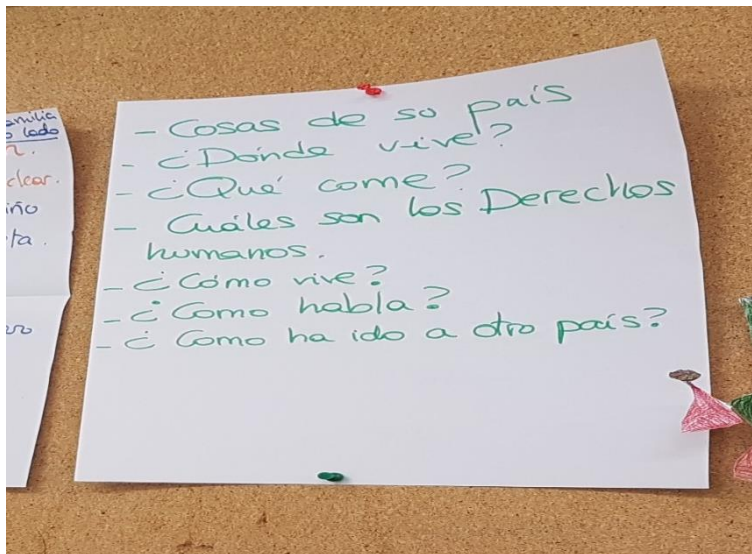 amilia
lado
clear.
iño
ta.
- Cosas de so país
- ¿Dónde vive?
- ¿Qué come?
- Cuáles son los Derechos
humanos.
- ¿Cómo vive?
- ¿Como habla?
- ¿Como ha ido a otro país?